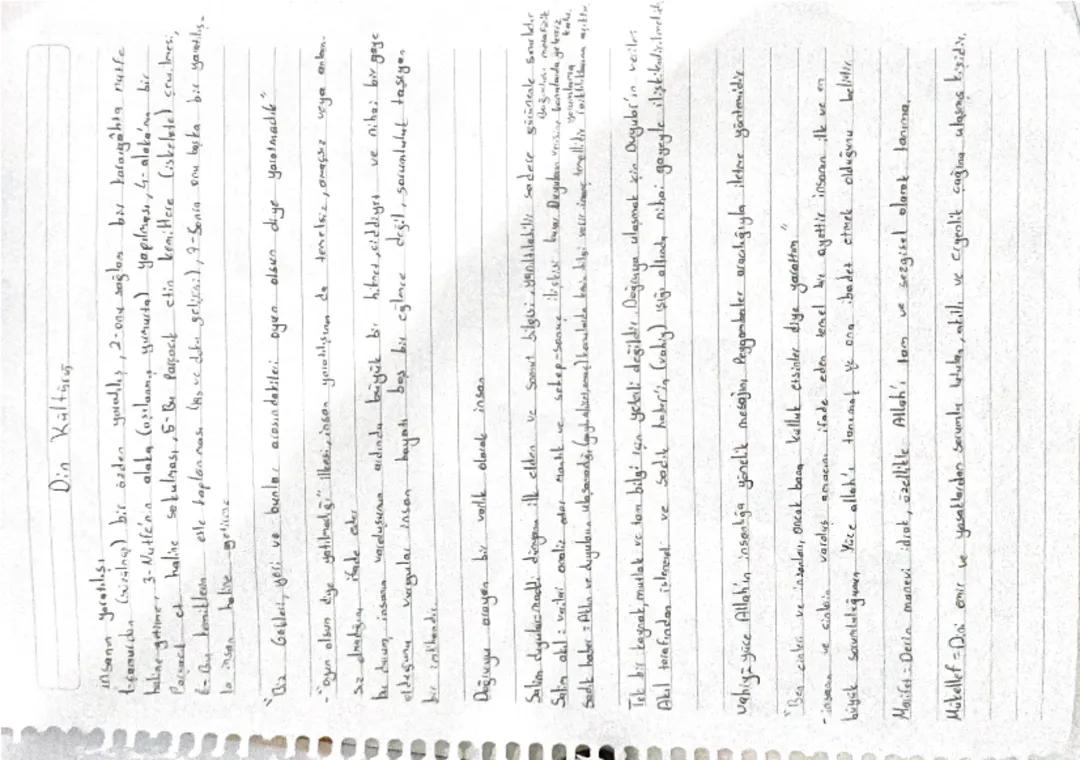 Din Kültürü
insanın yaratılışı
1-Çamurdan (süzülmüş) bir özden yaratılış, 2-onu sağlam bir karargahta nutfe
haline getirme, 3-Nutfe'nin alaka (aşılanmış yumurta) yapılması, 4-alaka'nın bir
Parçacık et haline sokulması, 5-Bu Parçacık etin kemiklere (iskelete) çevrilmesi,
6-Bu kemiklerin etle kaplanması (kas ve doku gelişimi), 7-Sonra onu başka bir yaratılış-
la insan haline getirme
"Biz Gökleri, yeri ve bunlar arasındakileri oyun olsun diye yaratmadık"
-"oyun olsun diye yatılmadığı" ilkesi, insan yaratılışının da temelsiz, amaçsız veya anlam-
sız olmadığını ifade eder
bu durum, insanın varoluşunun ardında büyük bir hikmet, ciddiyet ve nihai bir gaye
olduğunu vurgular insan hayatı boş bir eğlence değil, sorumluluk taşıyan
bir imtihandır
Doğruyu arayan bir varlık olarak insan
Salim duyular: maddi dünyanın ilk elden ve somut bilgisi, yanıltılabilir sadece görünenle sınırlıdır
Salim akıl: verileri analiz eder Mantık ve sebep-sonuç ilişkisi kurar Duyuların verisine
Sadık haber: Aklın ve duyuların ulaşamadığı konularda kesin bilgi verir
Tek bir kaynak, mutlak ve tam bilgi için yeterli değildir. Doğruya ulaşmak için Duyular'ın verileri
Akıl tarafından işlenmeli ve Sadık haber'in (vahiy) ışığı altında nihai gayeyle ilişkilendirilmelidir
Vahiy= yüce Allah'ın insanlığa yönelik mesajını Peygamberler aracılığıyla iletme yöntemidir
"Ben cinleri ve insanları, ancak bana kulluk etsinler diye yarattım"
-insanın ve cinlerin varoluş amacını ifade eden temel bir ayettir insanın ilk ve en
büyük sorumluluğunun Yüce allah'ı tanımak ve ona ibadet etmek olduğunu belirtir
Marifet=Derin manevi idrak, özellikle Allah'ı tam ve sezgisel olarak tanıma.
Mükellef=Dini emir ve yasaklardan sorumlu tutulan, akıllı ve ergenlik çağına ulaşmış kişidir.